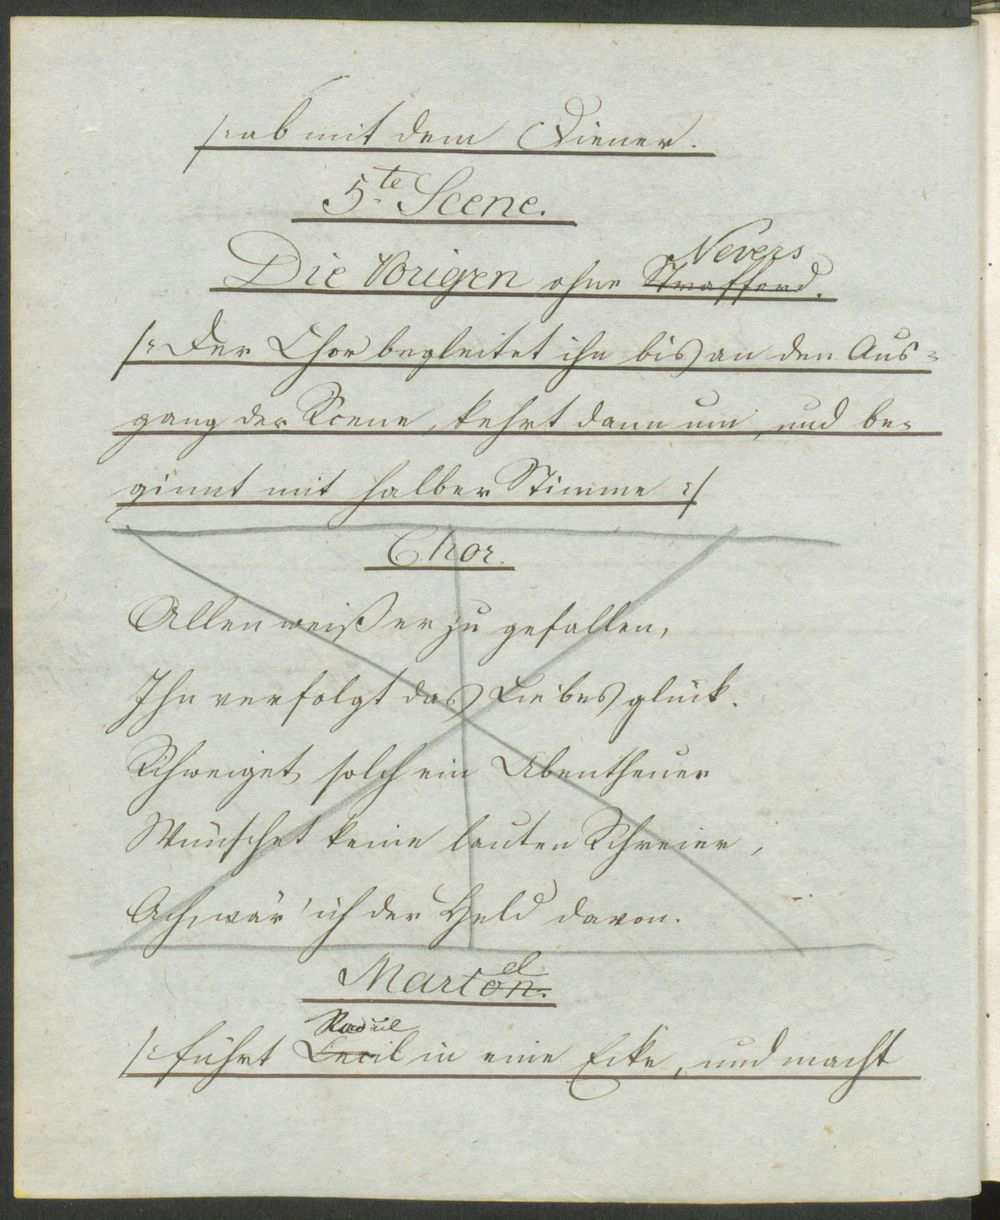 /: ab mit dem Diener.
5te Scene.
Nevers
Die Vorigen ohne Strafford.
/: Der Chor begleitet ihn bis an den Aus=
gang der Scene, kehrt dann um, und be=
ginnt mit halber Stimme :/
Chor.
Allen weiß er zu gefallen,
Ihn verfolgt das Liebesglück.
Schweiget, solch ein Abentheuer
Wünschet keine lauten Schreier,
Ach, wär' ich der Held davon.
el
Marton.
Raoul
/: führt Cecil in eine Ecke, und macht